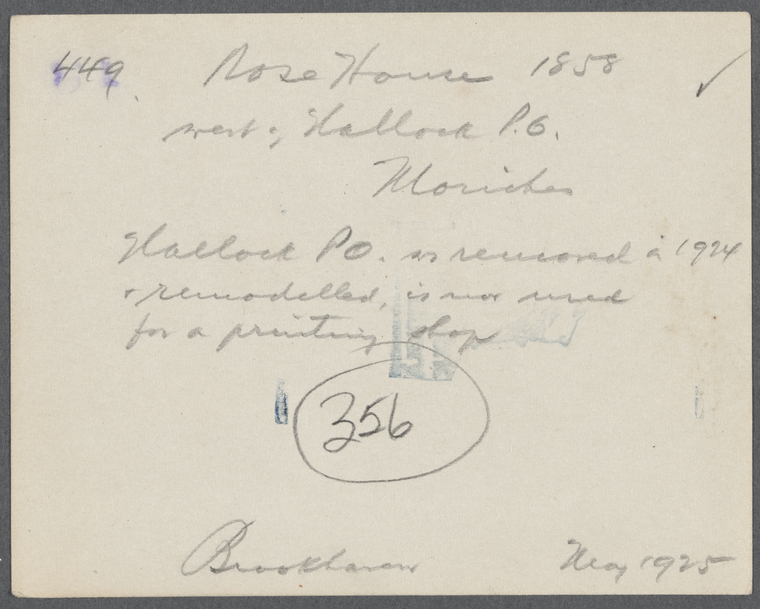 449. Rose House 1858 ✓
west of Hallock P.O.
Moriches
Hallock PO. as removed in 1924
& remodelled, is now used
for a printing shop
356
Brookhaven May 1925